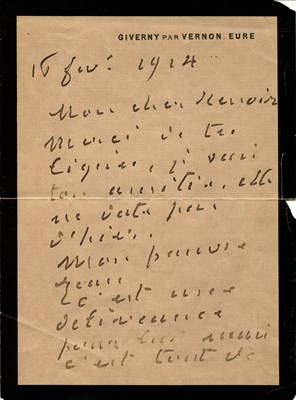 GIVERNY PAR VERNON. EURE
16 fev. 1914
Mon cher Renoir
Merci de tes
lignes, je sais
ton amitié, elle
ne date pas
d'hier.
Mon pauvre
Jean
c'est une
délivrance
pour lui mais
c'est tout de